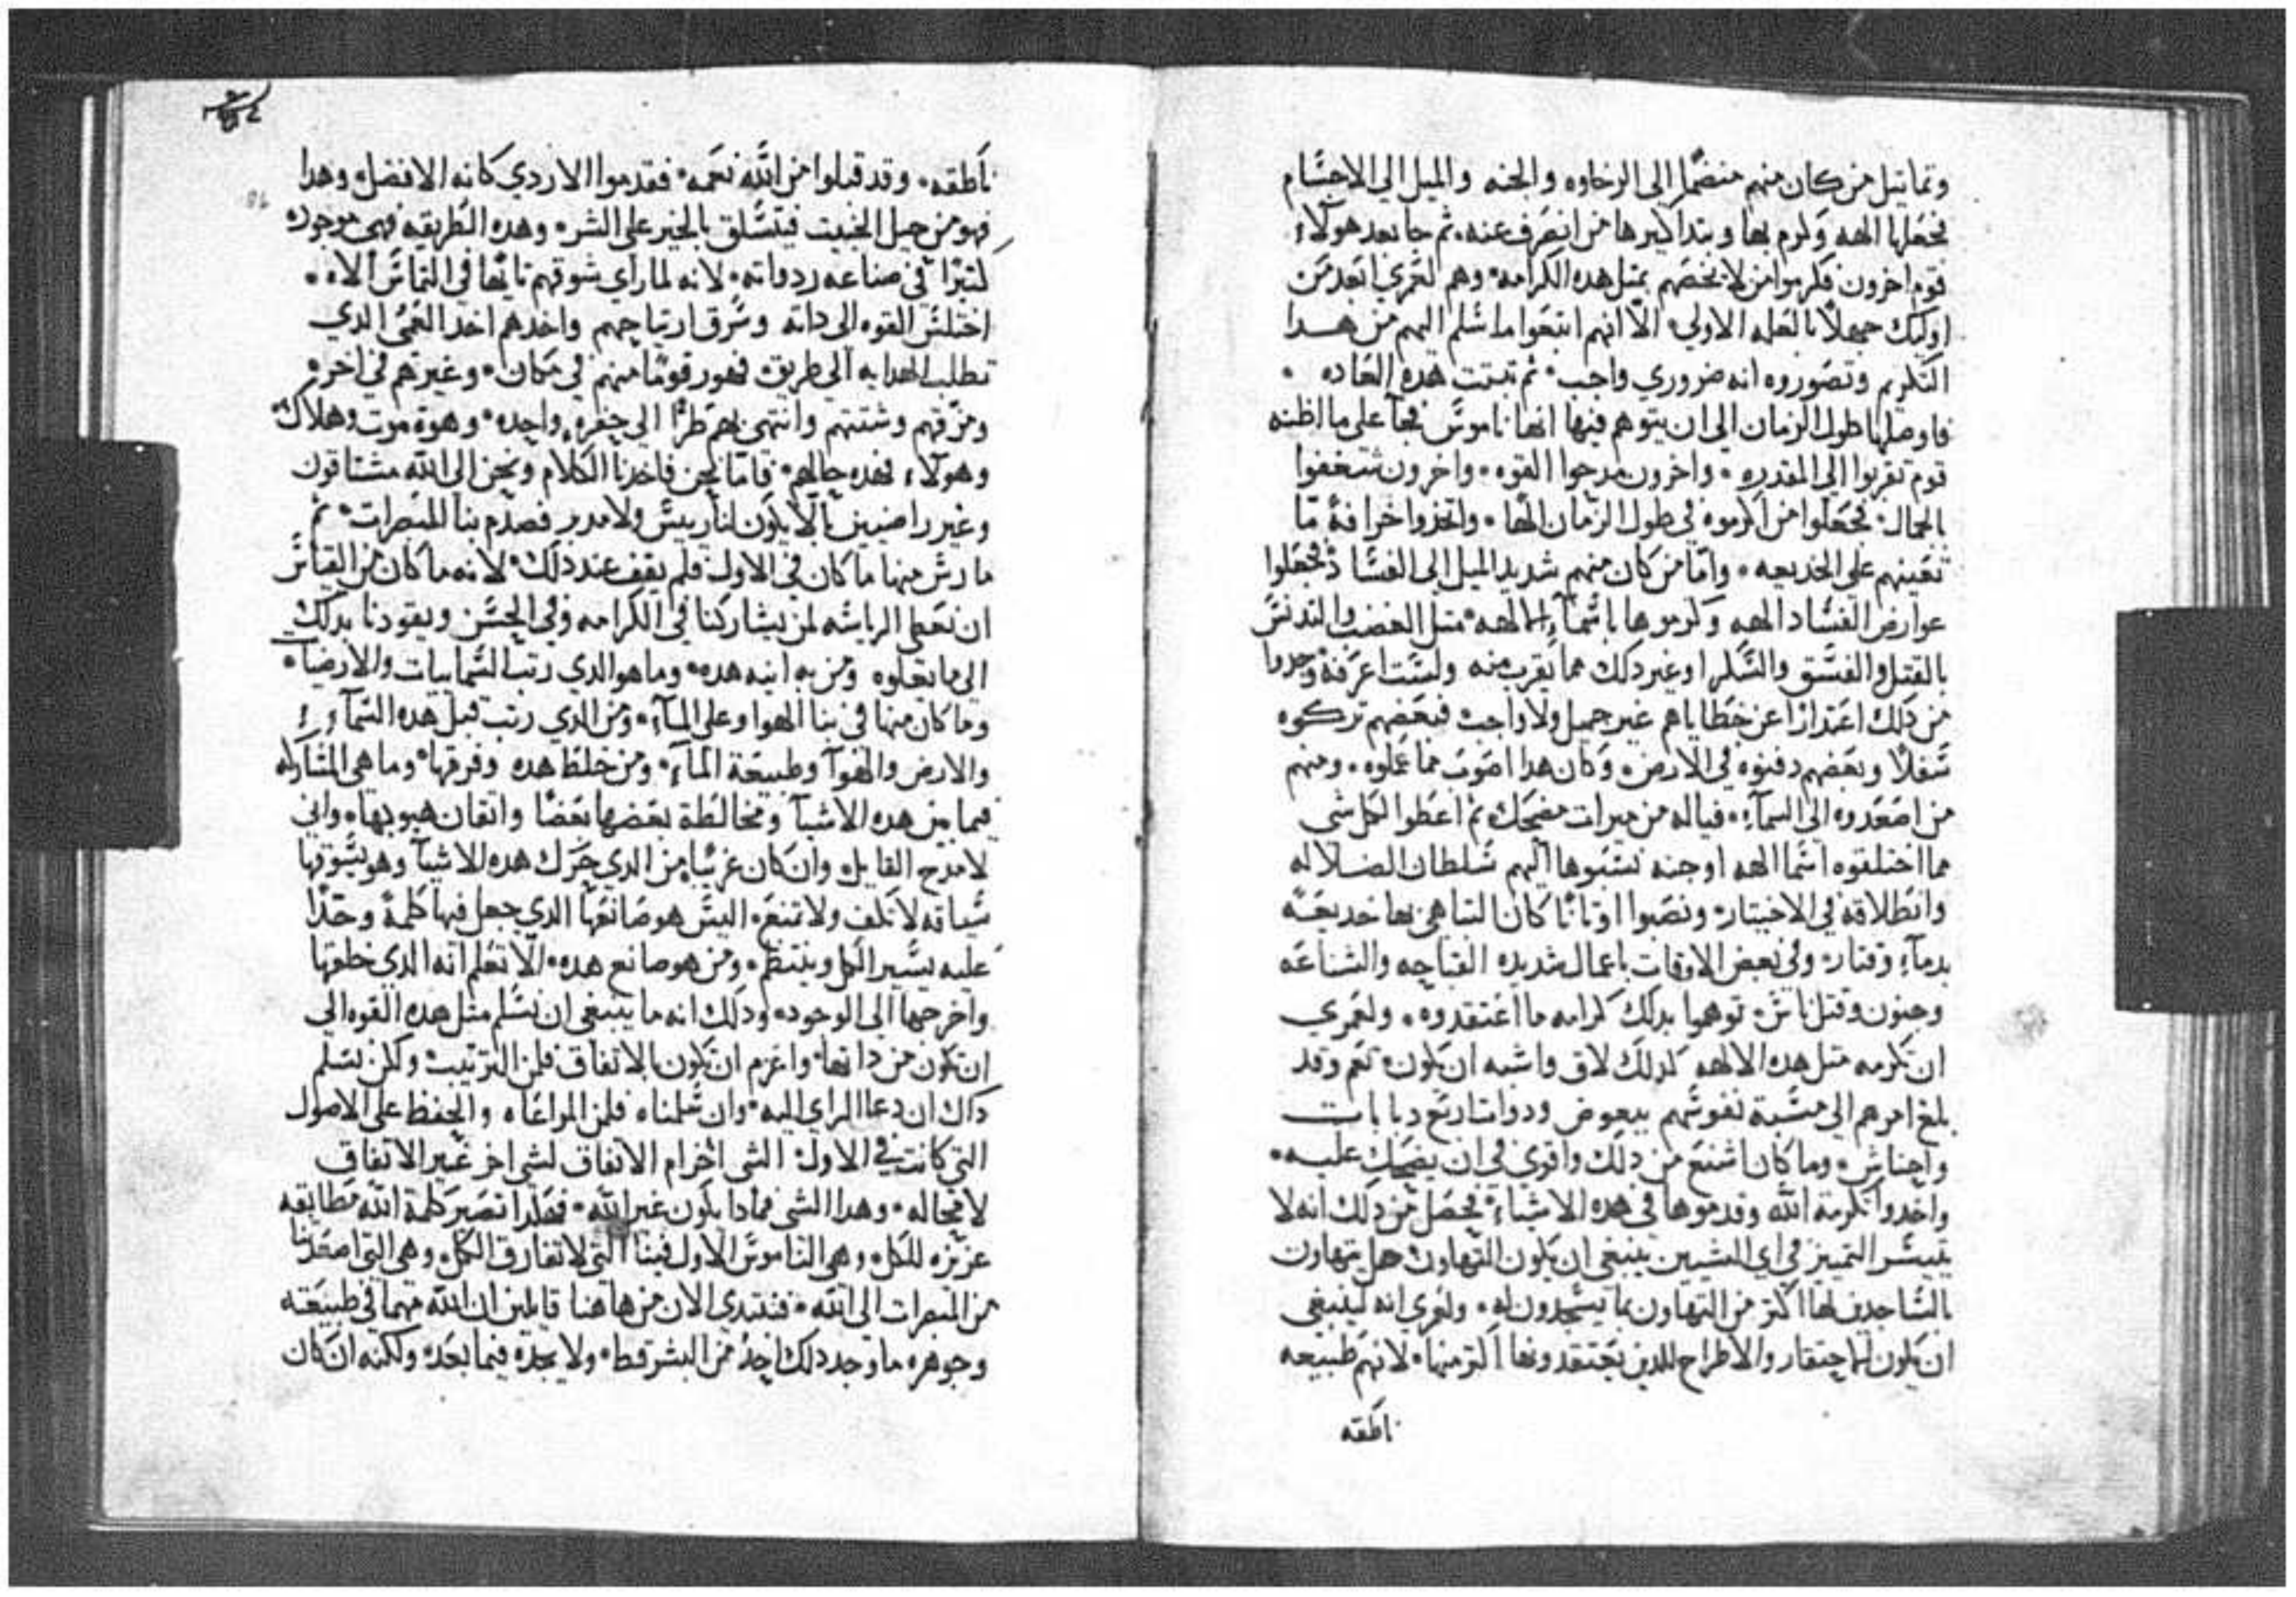 وتماتيل من كان منهم منضمًا الى الرخاوه والجنه والميل الي الاجسام
فجعلها الهه وكرم بها ويتدا كيرها من انصرف عنه. ثم جا بعد هولاء
قوم اخرون فكرموا من لا يخصهم بمتل هده الكرامه. وهم لعمري ابعد من
اوليك جهلاً بالعله الاولي. الا انهم اتبعوا ما سلم اليهم من هدا
التكريم وتصوروه انه ضروري واجب. ثم تبتت هده العاده.
فاوصلها طول الزمان الي ان يتوهم فيها انها ناموس فجا على ما اظنه
قوم تقربوا الى المقدره. واخرون مدحوا القوه. واخرون شغفوا
بالجمال. فجعلوا من اكرموه في طول الزمان الها. واتخذوا خرافة ما
تعينهم علي الخديعه. وامّا من كان منهم شديد الميل الى الفساد فجعلوا
عوارض الفساد الهه وكرموها باسماء الهه. متل الغضب والتدنس
بالقتل والفسق والسكر او غير دلك مما يقرب منه ولست اعرفه وجدوا
من دلك اعتدارًا عن خطاياهم غير جميل ولا واجب فبعضهم تركوه
سفلاً وبعضهم دفنوه في الارض. وكان هدا اصوب مما عملوه. ومنهم
من اصعدوه الى السماء. فياله من ميرات مضحك ثم اعطوا لكل شي
مما اختلقوه اسما الهه او جنه نسبوها اليهم سلطان الضلاله
وانطلاقه في الاختيار. ونصبوا اوتانًا كان التناهي بها خديعةً
بدماء وقتار. وفي بعض الاوقات باعمال شديده القباحه والشناعه
وجنون وقتل ناس. توهموا بدلك كرامه ما اعتقدوه. ولعمري
ان تكرمه متل هده الالهه كدلك لاق واشبه ان يكون. نعم وقد
بلغ امرهم الى مسبة نفوسهم ببعوض ودوات اربع ودبابات
واحناش. وما كان اشنع من دلك واقوي في ان يضحك عليه.
واخدوا تكرمة الله وقدموها في هده الاشياء. فحصل من دلك انه لا
يتيسر التمييز في اي الشيين ينبغي ان يكون التهاون هل يتهاون
بالساجدين لها اكتر من التهاون بما يسجدون له. ولعمري انه لينبغي
ان يكون الاحتقار والاطراح للدين يعتقدونها اكتر منها. لانهم طبيعه
ناطقه
ناطقه. وقد قبلوا من الله نعمه. فقدموا الاردي كانه الافضل. وهدا
فهو من حيل الخبيت فيتسلق بالخير على الشر. وهده الطريقه فهي موجوده
كتيرًا في صناعه ردواته. لانه لما راي شوقهم تايهًا في التماس الاله.
اختلس القوه الى داته وسرق ارتياحهم واخدهم اخد العمي الدي
تطلب الهدايه الي طريق. فهور قومًا منهم في مكان. وغيرهم في اخر.
ومزقهم وشتتهم وانتهى بهم طرًا الي حفره واحده. وهوة موت وهلاك.
وهولاء فهده حالهم. فامّا نحن فاخدنا الكلام ونحن الى الله مشتاقون
وغير راضيين بالا يكون لنا رييس ولا مدبر فصدم بنا المبصرات. ثم
مارس منها ما كان في الاول. فلم يقف عند دلك. لانه ما كان من القياس
ان نعطى الرياسه لمن يشاركنا في الكرامه وفي الحسن ويقودنا بدلك
الي ما يعلوه ومن به اينيه هده. وما هو الدي رتب السماييات والارضيات.
وما كان منها في بنا الهوا وعلى الماء. ومن الدي رتب قبل هده السماء
والارض والهوا وطبيعة الماء. ومن خلط هده وفرقها. وما هي المشاركه
فيما بين هده الاشيا ومخالطة بعضها بعضًا واتقان هبوبها. واني
لامدح القايل وان كان غريبًا. من الدي حرك هده الاشيا وهو يسوقها
سياقه لا تكف ولا تنقع. اليس هو صانعها الدي جعل فيها كلمةً وحدًا
عليه يسير الكل وينتظم. ومن هو صانع هده. الا تعلم انه الدي خلقها
واخرجها الى الوجود. ودلك انه ما ينبغي ان نسلم متل هده القوه الي
ان تكون من داتها. واعزم ان تكون بالاتفاق فلمن الترتيب. ولكن نسلم
داك ان دعا الراي اليه. وان سلمناه فلمن المراعاه والحفظ على الاصول
التي كانت في الاول. الشي اخر ام الاتفاق لشي اخر غير الاتفاق
لا محاله. وهدا الشي فمادا يكون غير الله. فهكدا تصير كلمة الله مطابقه
عزيزه للكل. وهي الناموس الاول فينا التي لا تفارق الكل. وهي التي اصعدتنا
من المبصرات الى الله. فنبتدي الان من هاهنا قايلين ان الله مهما في طبيعته
وجوهره ما وجد دلك احدٌ من البشر قط. ولا يجده فيما بعد. ولكنه ان كان